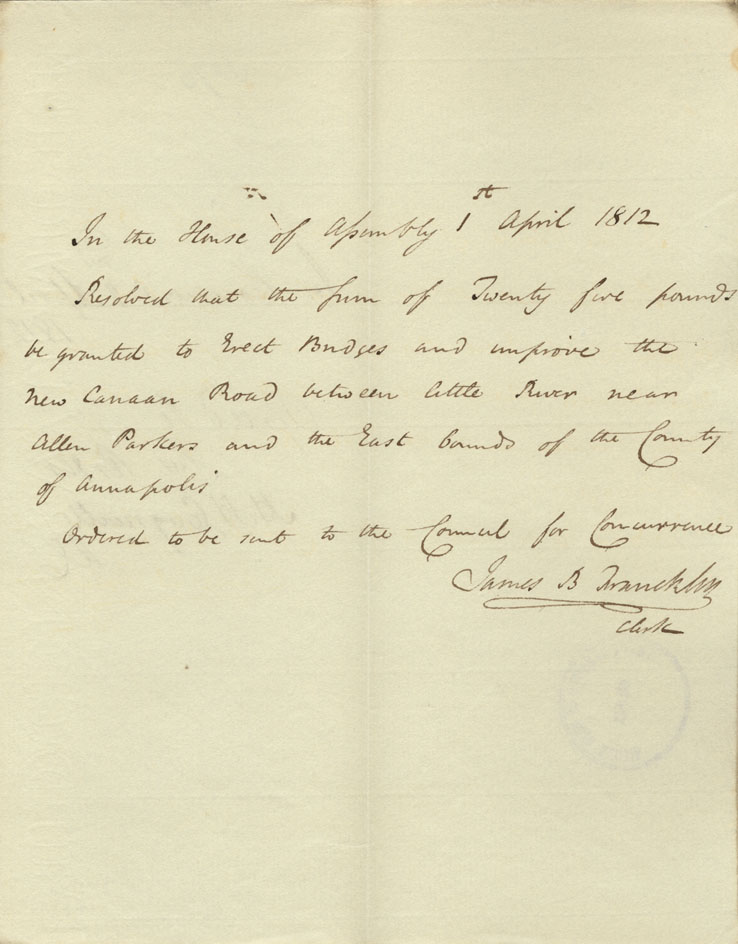 In the House of Assembly 1st April 1812
Resolved that the sum of Twenty five pounds
be granted to Erect Bridges and improve the
new Canaan Road between little River near
Allen Parkers and the East bounds of the County
of Annapolis
Ordered to be sent to the Council for Concurrence
James B Francklin
Clerk